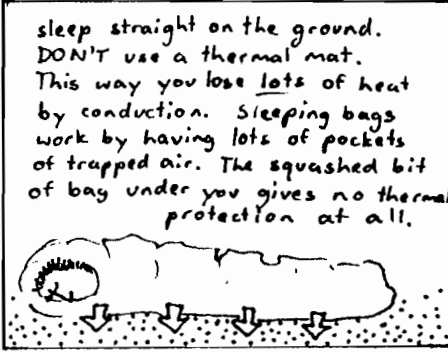 sleep straight on the ground.
DON'T use a thermal mat.
This way you lose lots of heat
by conduction. Sleeping bags
work by having lots of pockets
of trapped air. The squashed bit
of bag under you gives no thermal
protection at all.